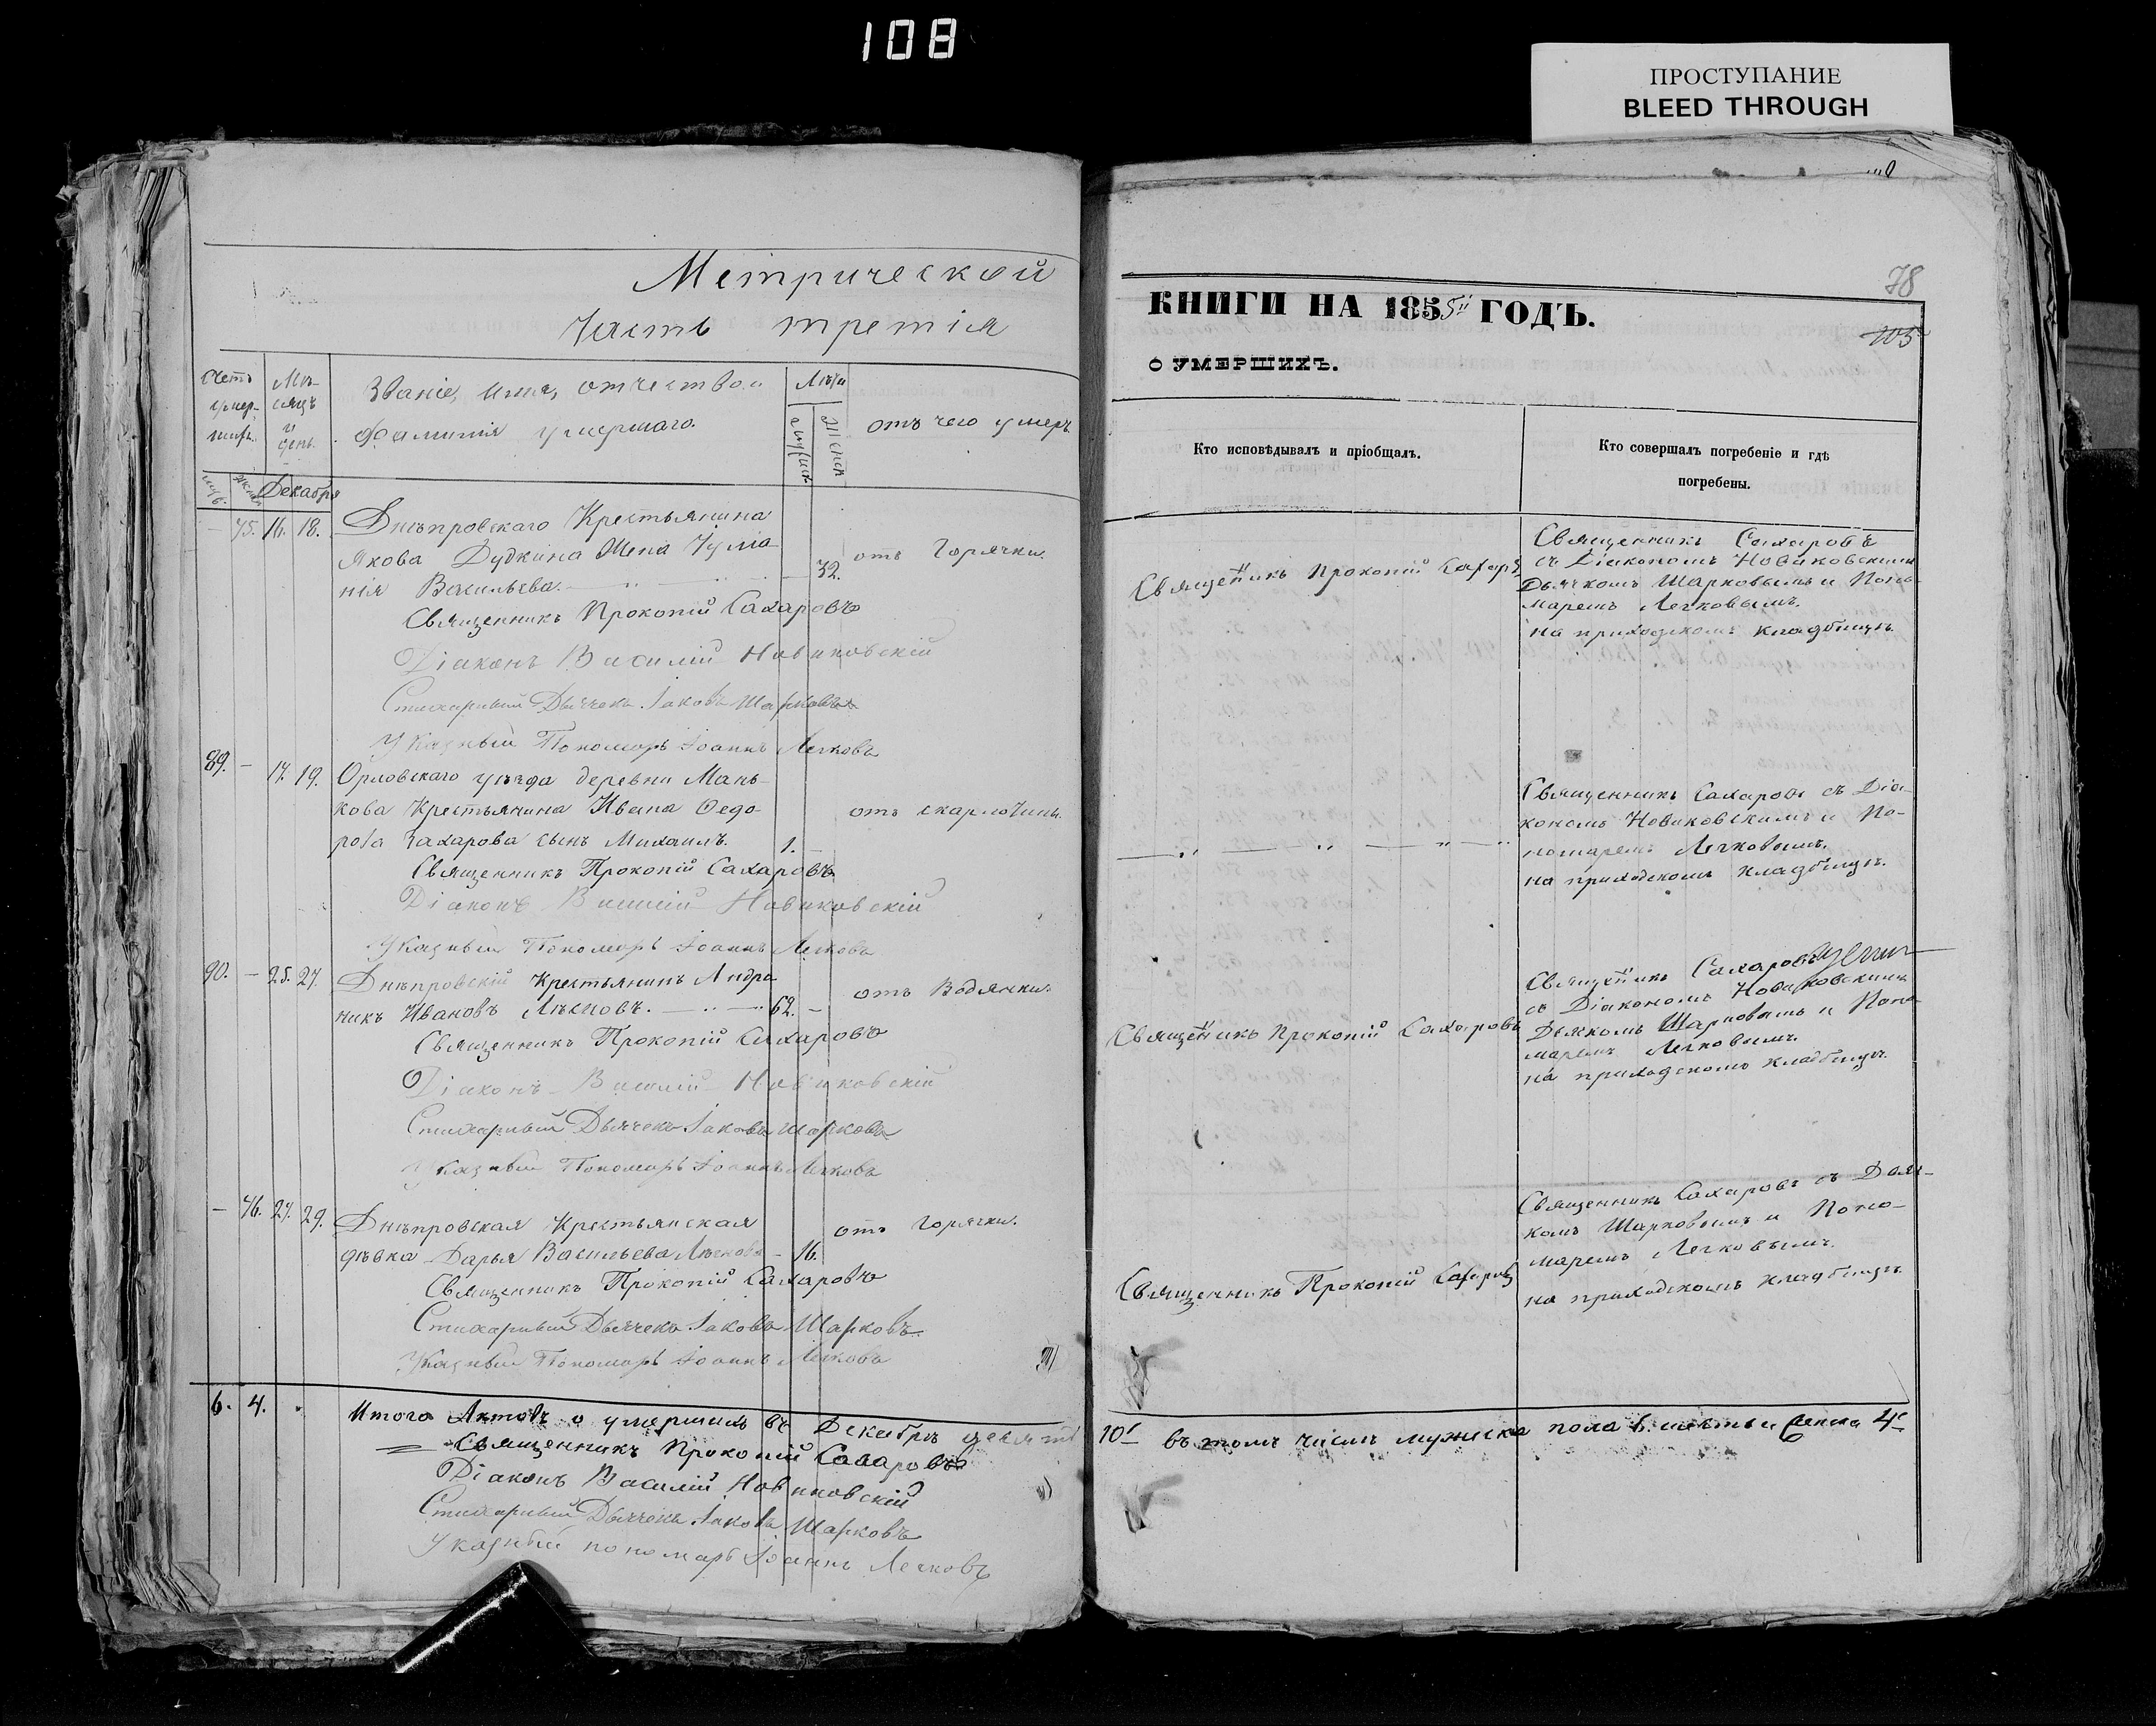 108
ПРОСТУПАНИЕ
BLEED THROUGH
Метрической
Часть третія
Счетъ умер-шихъ.
Мѣ-сяцъ и день.
Званіе, имя, отчество и
фамилія умершаго.
Лѣта
отъ чего умеръ.
Декабря
75. 16. 18. Днѣпровскаго Крестьянина
Якова Дудкина Жена
нія Васильева. 32. отъ Горячки.
Священникъ Прокопій Сахаровъ
Діаконъ Василій Новиковскій
Стихарный Дьячекъ Іаковъ Шарковъ
Указный Пономарь Іоаннъ Легковъ
89. – 17. 19. Орловскаго уѣзда деревни Мань-
кова Крестьянина Ивана Ѳедо- отъ скарлотины.
рова Захарова сынъ Михаилъ. 1. –
Священникъ Прокопій Сахаровъ
Діаконъ Василій Новиковскій
Указный Пономарь Іоаннъ Легковъ
90. – 25. 27. Днѣпровскій Крестьянинъ Андро
никъ Ивановъ 62. – отъ Водянки.
Священникъ Прокопій Сахаровъ
Діаконъ Василій Новиковскій
Стихарный Дьячекъ Іаковъ Шарковъ
Указный Пономарь Іоаннъ Легковъ
– 76. 27. 29. Днѣпровская Крестьянская отъ Горячки.
дѣвка Дарья Васильева – 16.
Священникъ Прокопій Сахаровъ
Стихарный Дьячекъ Іаковъ Шарковъ
Указный Пономарь Іоаннъ Легковъ
6. 4. Итого Актовъ о умершихъ въ Декабрѣ
Священникъ Прокопій Сахаровъ
Діаконъ Василій Новиковскій
Стихарный Дьячекъ Іаковъ Шарковъ
Указный пономарь Іоаннъ Легковъ
78
105
КНИГИ НА 1855й ГОДЪ.
О УМЕРШИХЪ.
Кто исповѣдывалъ и пріобщалъ.
Кто совершалъ погребеніе и гдѣ
погребены.
Священникъ Прокопій Сахаровъ
Священникъ Сахаровъ
съ Діакономъ Новиковскимъ
Дьячкомъ Шарковымъ и Поно-
маремъ Легковымъ.
на приходскомъ кладбищѣ.
Священникъ Сахаровъ съ Діа-
кономъ Новиковскимъ и По-
номаремъ Легковымъ.
на приходскомъ кладбищѣ.
Священникъ Прокопій Сахаровъ
Священникъ Сахаровъ
съ Діакономъ Новиковскимъ
Дьячкомъ Шарковымъ и Поно-
маремъ Легковымъ.
на приходскомъ кладбищѣ.
Священникъ Прокопій Сахаровъ
Священникъ Сахаровъ съ Дьяч-
комъ Шарковымъ и Поно-
маремъ Легковымъ.
на приходскомъ кладбищѣ.
10 въ томъ числѣ мужеска пола 6. шесть и женска 4